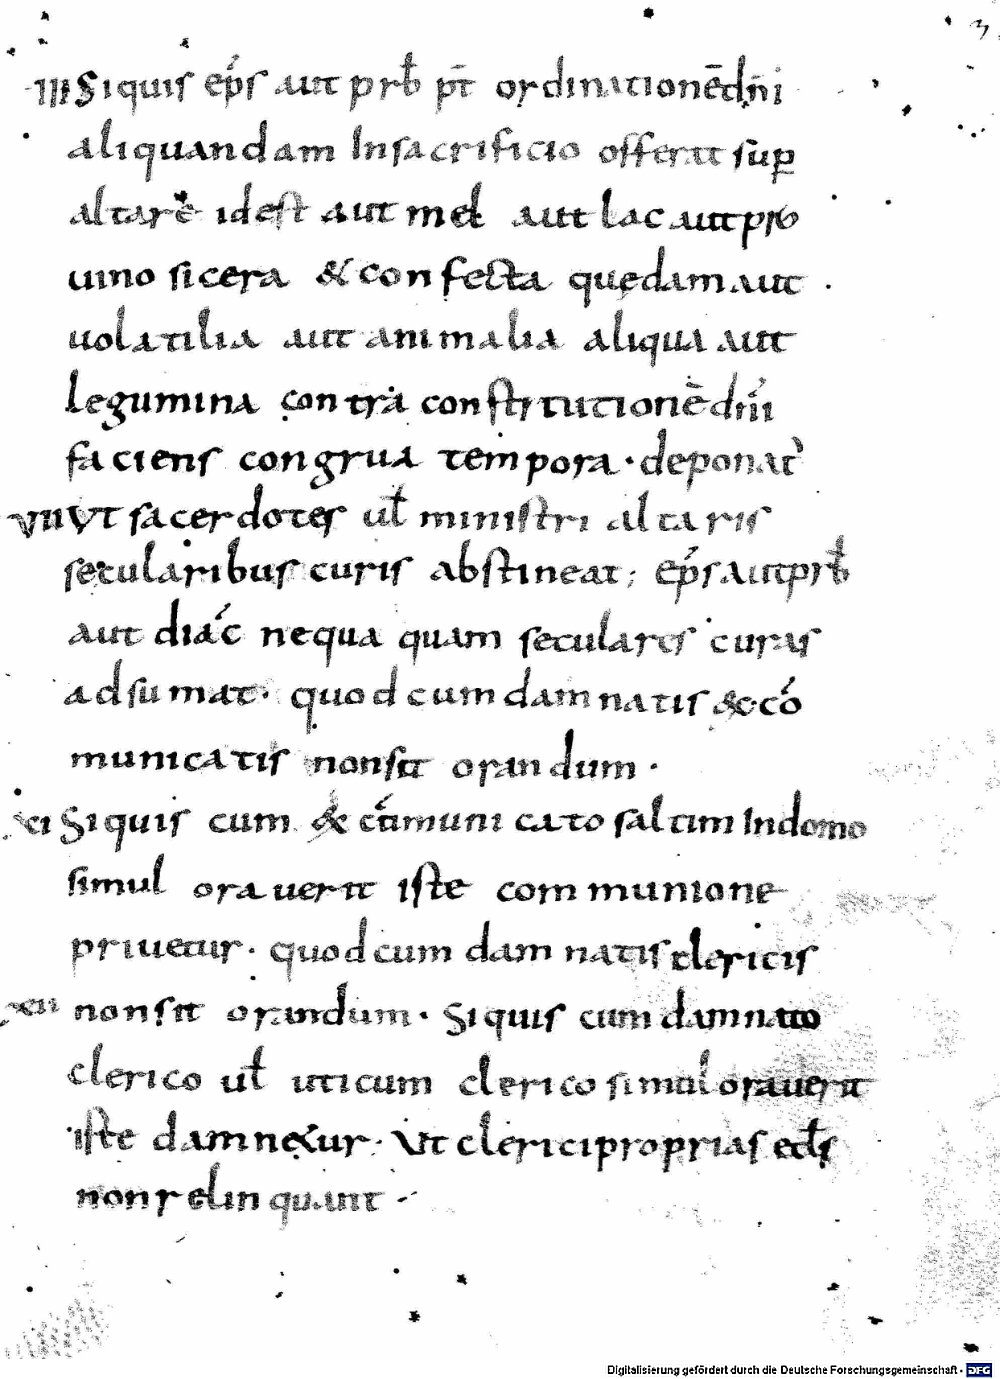 3
III Siquis ep̄s aut prb̄ pt̄ ordinationē dn̄i
aliquandam In sacrificio offerat sup
altare idest aut mel aut lac aut pro
uino sicera & confecta quędam aut
uolatilia aut animalia aliqua aut
legumina contra constitutionē dn̄i
faciens congrua tempora · deponat᷎
VII VT sacerdotes ul̄ ministri altaris
secularibus curis abstineat; ep̄s aut prb̄
aut diac̄ nequa quam seculares curas
adsumat · quod cum damnatis & cō
municatis non sit orandum ·
XI Siquis cum & cōmuni cato saltim In domo
simul orauerit iste communione
priuetur · quod cum damnatis clericis
XII non sit orandum · Siquis cum damnato
clerico ul̄ uti cum clerico simul orauerit
iste damnetur · Ut clerici proprias ecl̄s
non relinquant ·
Digitalisierung gefördert durch die Deutsche Forschungsgemeinschaft - DFG